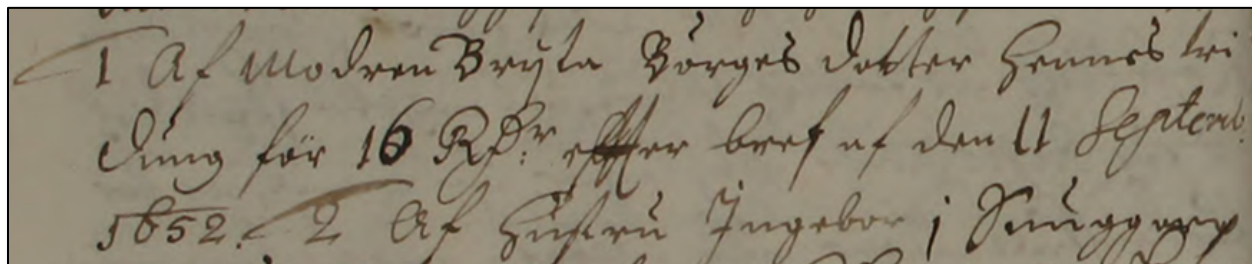 1 Af Modren Bryta Börges dotter hennes tri
dung för 16 Rdr: effter bref af den 11 Septemb.
1652. 2 Af Hustru Ingebor j